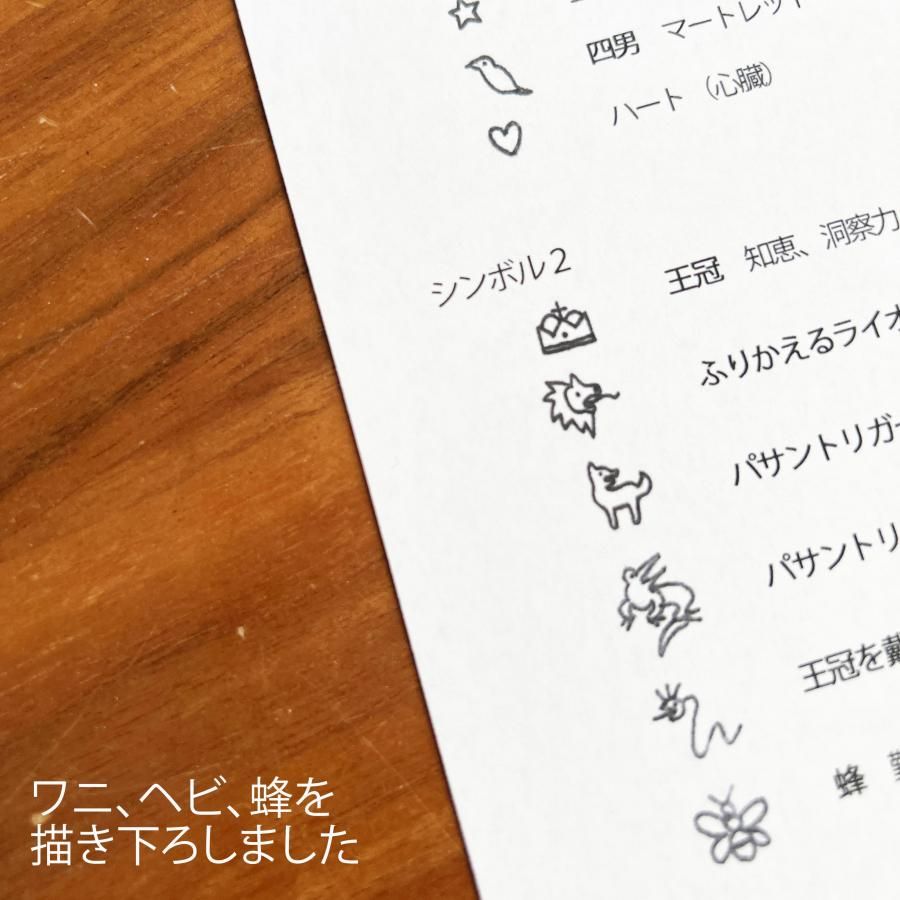 四男 マートレット
ハート（心臓）
シンボル2
王冠 知恵、洞察力
ふりかえるライオ
パサントリガー
パサントリ
王冠を戴
蜂 勤
ワニ、ヘビ、蜂を
描き下ろしました